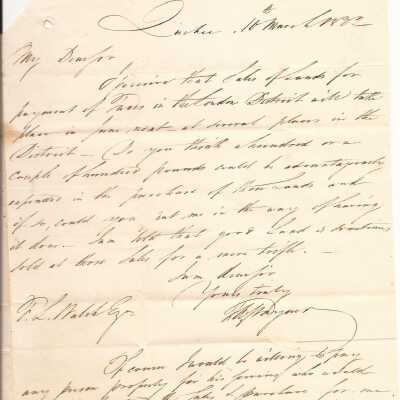 Quebec 10th March 1832
My Dear Sir
I perceive that Sales of Lands for
payment of Taxes in the London District will take
place in June next at several places in the
District — Do you think a hundred or a
couple of hundred pounds could be advantageously
expended in the purchase of these Lands and
if so, could you put me in the way of having
it done. I am told that good Land is sometimes
sold at those Sales for a mere trifle. —
I am Dear Sir
Yours truly
F. L. Walsh Esq.
Of course I would be willing to pay
any person properly for his services who would
purchase for me